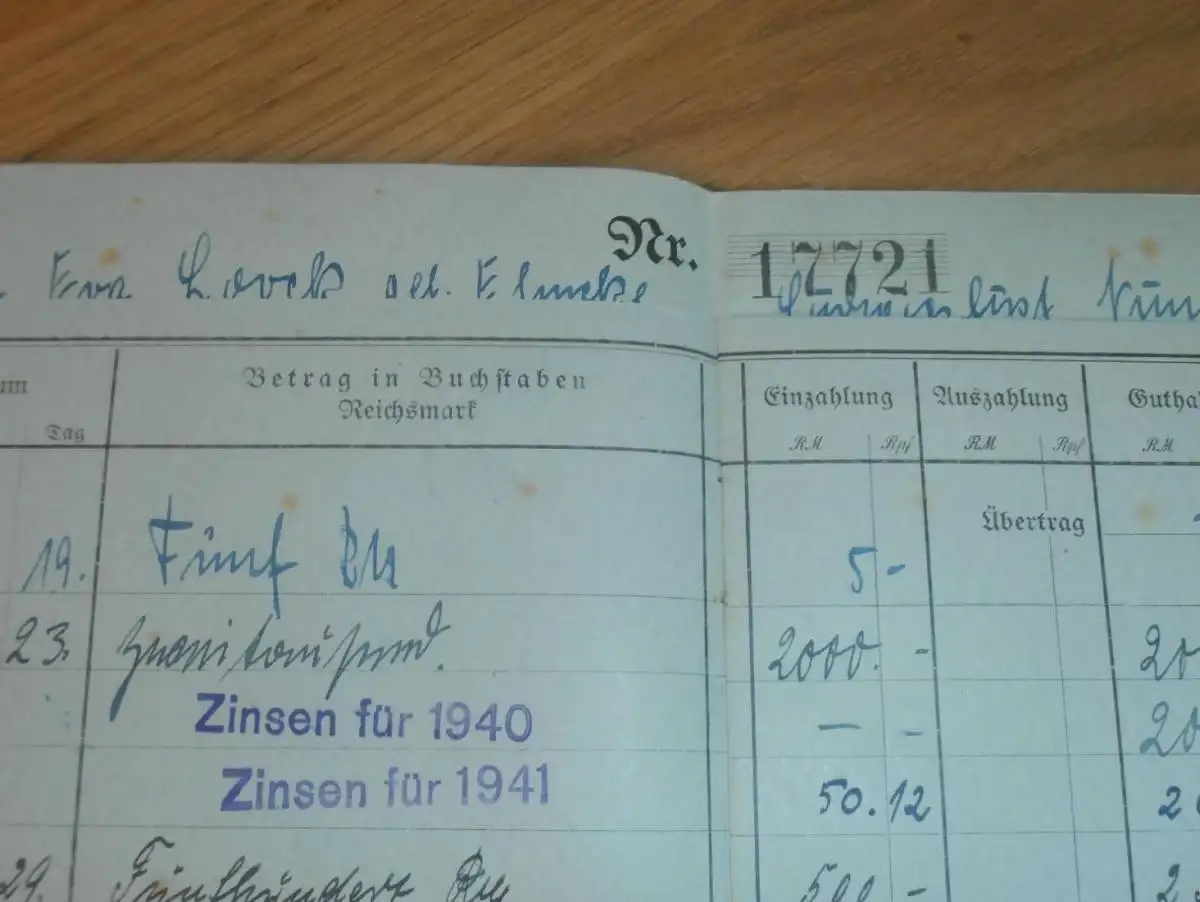 Nr. 17721
Betrag in Buchstaben
Reichsmark
Tag
Einzahlung
RM Rpf
Auszahlung
RM Rpf
RM
Übertrag
19. Fünf RM 5 -
23. Zweitausend. 2000. -
Zinsen für 1940 — -
Zinsen für 1941 50.12
29. Fünfhundert RM 500 -